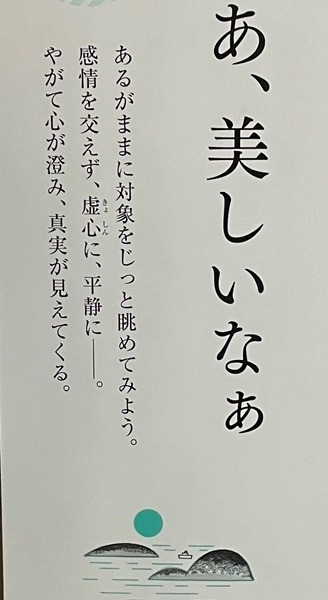 あ、美しいなぁ
あるがままに対象をじっと眺めてみよう。
感情を交えず、虚心に、平静に――。
きょしん
やがて心が澄み、真実が見えてくる。